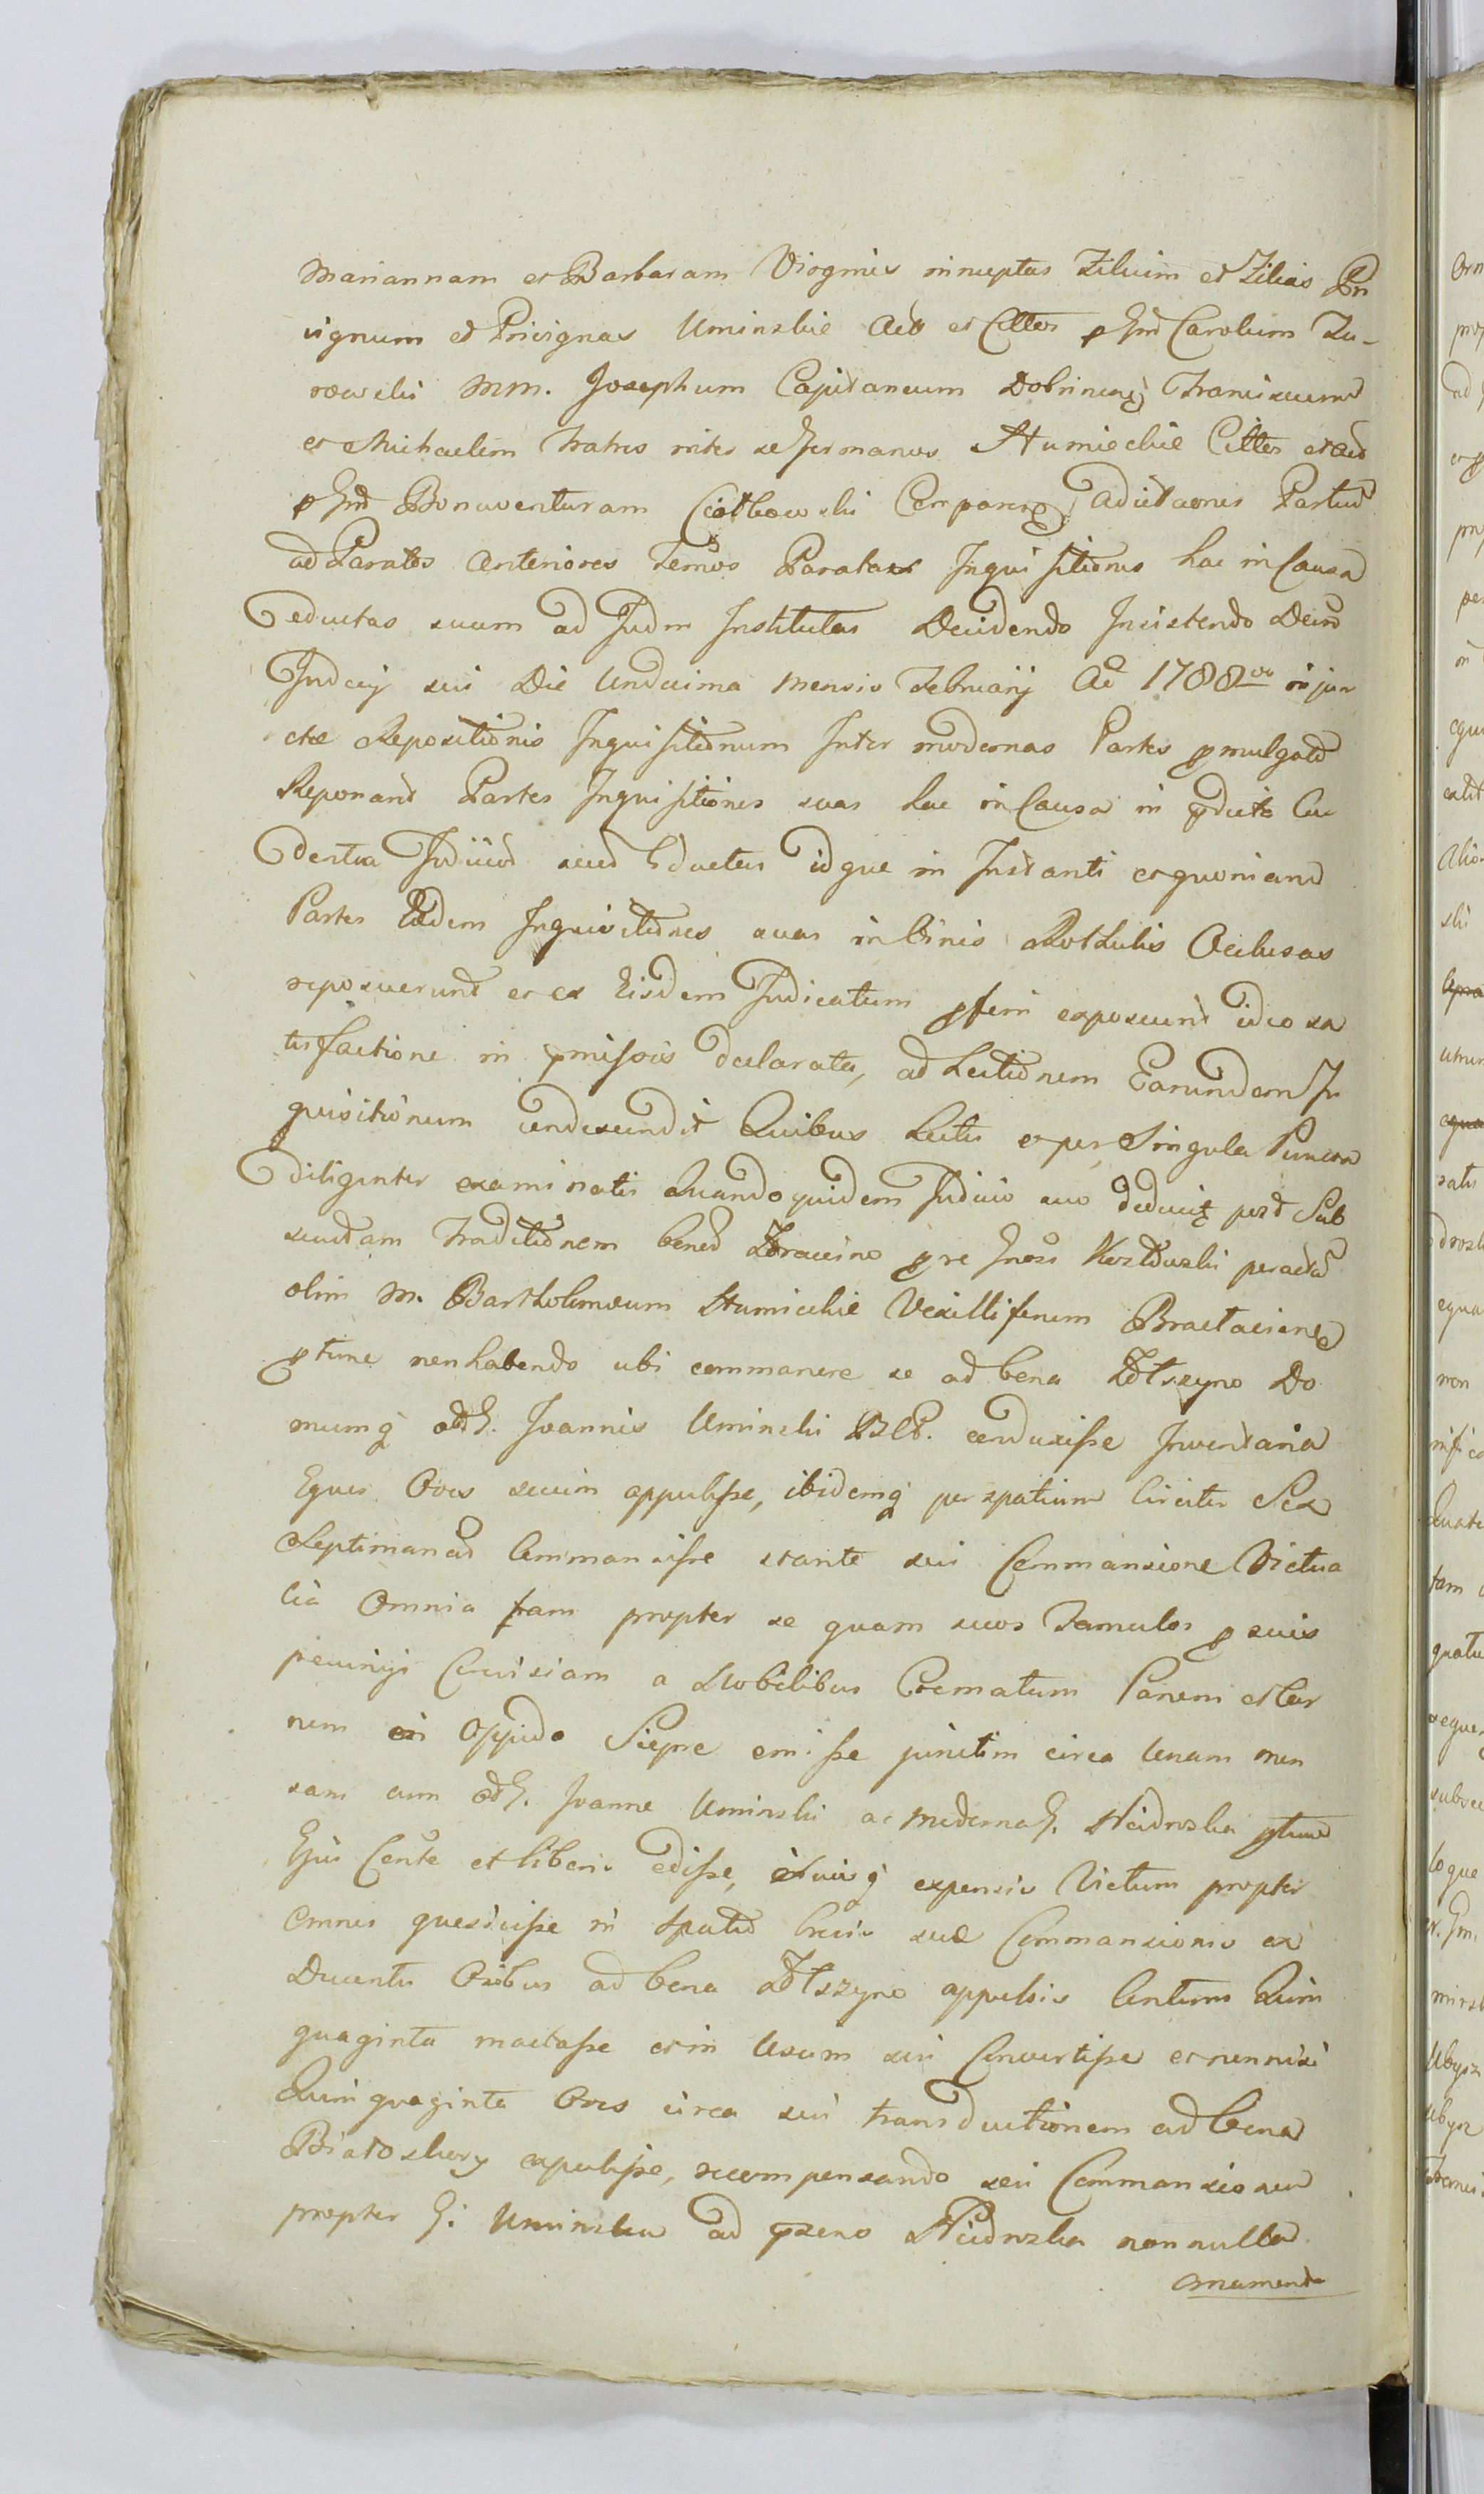 Mariannam et Barbaram Virgines innuptas Filium et Filias Pri
vignum et Privignas Uminskie Act et Cittos p Gnd Carolum Zu-
rowski MM. Josephum Capitaneum Dobrinens Franciscum
et Michaelem Fratres inter se Germanos Humieckie Cittos et Act
p Gnd Bonaventuram Ciotkowski Comparen Adcitationis Partium
ad Paratos Anteriores Termos Paratas Inquisitiones hac in Causa
eductas suum ad Judm Institutas Decidendo Insistendo Decto
Judicij sui Die Undecima Mensis Februarij Ao 1788vo in jun
ctae Repositionis Inquisitionum Inter modernas Partes pmulgato
Reponant Partes Inquisitiones suas hac in Causa in pducto Ca
dentia Judicij sui Eductas idque in Instanti et quoniam
Partes Eaedem Inquisitiones suas in binis Rothulis Occlusas
reposuerunt et ex Eisdem Judicatum pferri exposcunt ideo sa
tisfactione in pmissis declarata, ad Lectionem Earundem In
quisitionum condescendit Quibus Lectis et per Singula Puncta
diligenter examinatis Quandoquidem Judicio suo deducit post Sub
secutam Traditionem bonor pre Gnoso peracta
olim M. Bartholomeum Humieckie Vexilliferum
ptunc non habendo ubi commanere se ad bona Do
mumq olim G. Joannis Uminski conduxisse Inventaria
Equos Oves secum appulisse, ibidemq per spatium Circiter Sex
Septimanas Commansisse stante sui Commansione Victua
lia Omnia tam propter se quam suos Famulos p suis
pecunijs Cerevisiam a Nobilibus Crematum Panem et Car
nem in Oppido Sierpc emisse junctim circa Unam men
sam cum olim G. Joanne Uminski ac moderna G. ptunc
Ejus Conte et liberis edisse, suisq expensis Victum propter
omnes quesivisse in spatio brevis suae Commansionis ex
Ducentis Ovibus ad bona appulsis Centum Quin
quaginta mactasse et in Usum sui Convertisse et non nisi
Quinquaginta Oves circa sui transductionem ad bona
Białoskury expulisse, recompensando sui Commansionem
propter G: Uminska ad pzens non nulla
ornamenta